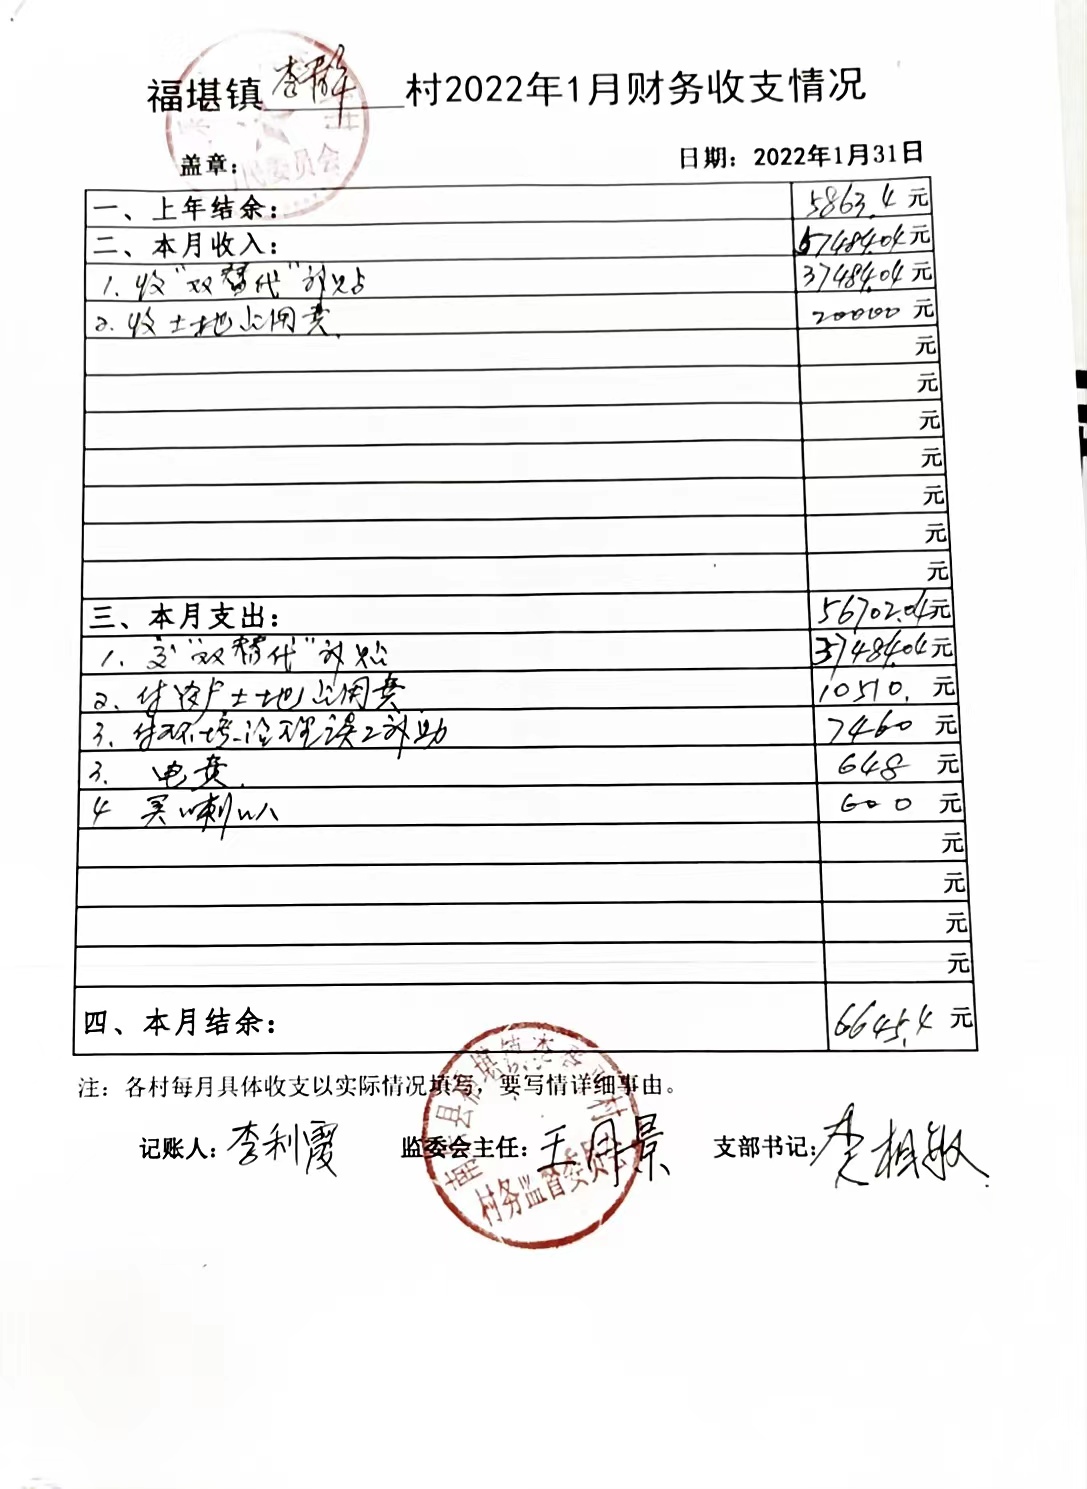 福堪镇村2022年1月财务收支情况
盖章：
日期：2022年1月31日
一、上年结余： 5863.4元
二、本月收入： 57484.04元
1.收"双替代"补贴 37484.04元
2.收土地占用费. 20000元
元
元
元
元
元
元
元
三、本月支出： 56702.04元
1.交"双替代"补贴 37484.04元
2.付户土地占用费 10510.元
3.付环境治理误工补助 7460元
3. 电费. 648元
4 买喇叭 600元
元
元
元
元
四、本月结余： 6645.4元
注：各村每月具体收支以实际情况填写，要写情详细事由。
记账人：李利霞 监委会主任：王周景 支部书记：相敏
村务监督委员会